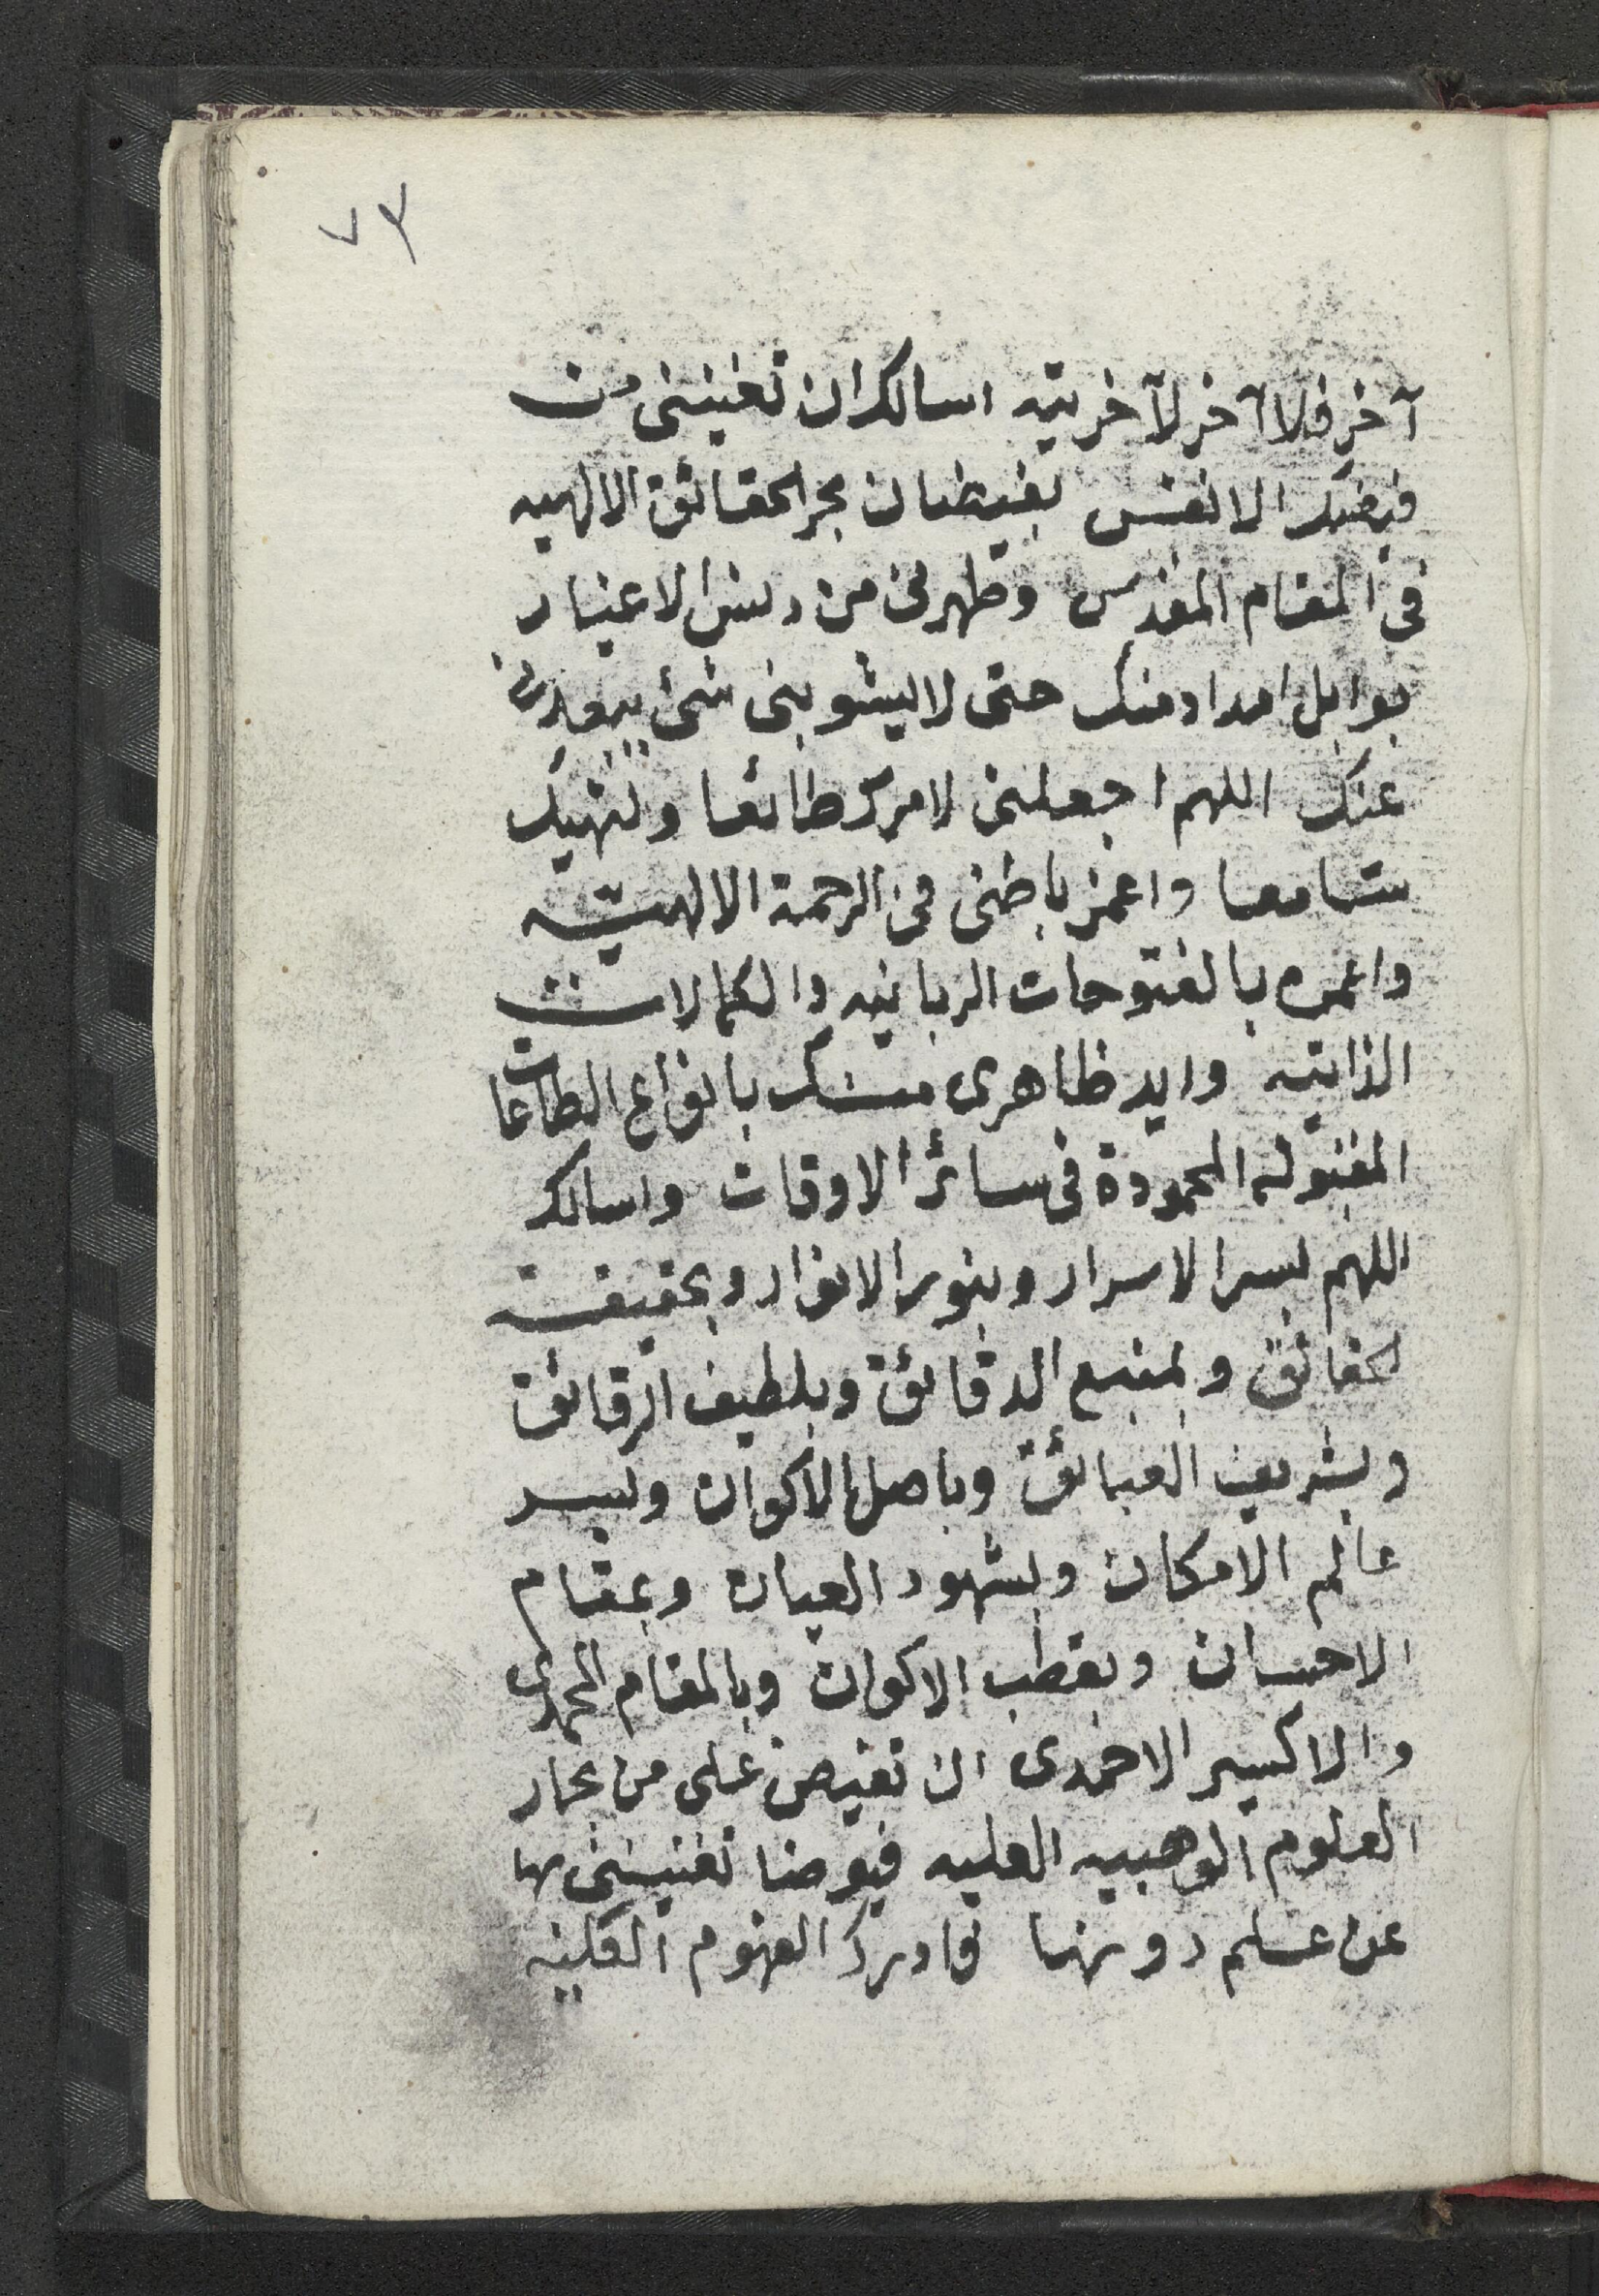 ٧٣
آخر فلا آخر لآخريته اسالك ان تغنينى من
فيضك الانفس بفيضان بحر الحقائق الالهيه
فى المقام المقدس وطهرنى من دنس الاغيار
بوابل امداد منك حتى لا يشوبنى شئ يبعدنى
عنك اللهم اجعلنى لامرك طائعا ولنهيك
سامعا واغمر باطنى فى الرحمة الالهيّه
واعمره بالفتوحات الربانيه والكمالات
الذاتيه وايد ظاهرى منك بانواع الطاعات
المقبوله المحمودة فى سائر الاوقات واسالك
اللهم بسر الاسرار وبنور الانوار وبحقيقة
الحقائق وبمنبع الدقائق وبلطيف الرقائق
وبشريف وباصل الاكوان وبسر
عالم الامكان وبشهود العيان وبمقام
الاحسان وبقطب الاكوان وبالمقام المحمدى
والاكسير الاحمدى ان تفيض على من بحار
العلوم الوهبيه العليه فيوضا تغنينى بها
عن علم دونها فادرك الفهوم